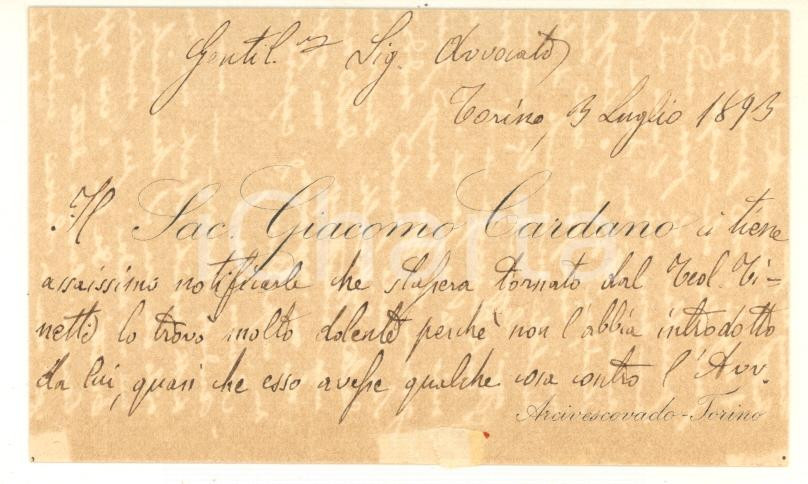 Gentil.mo Sig. Avvocato
Torino, 3 Luglio 1893
Il Sac. Giacomo Cardano ci tiene
assaissimo notificarle che stasera tornato dal Teol. Ti-
netti lo trovò molto dolente perchè non l'abbia introdotto
da lui, quasi che esso avesse qualche cosa contro l'Avv.
Arcivescovado-Torino